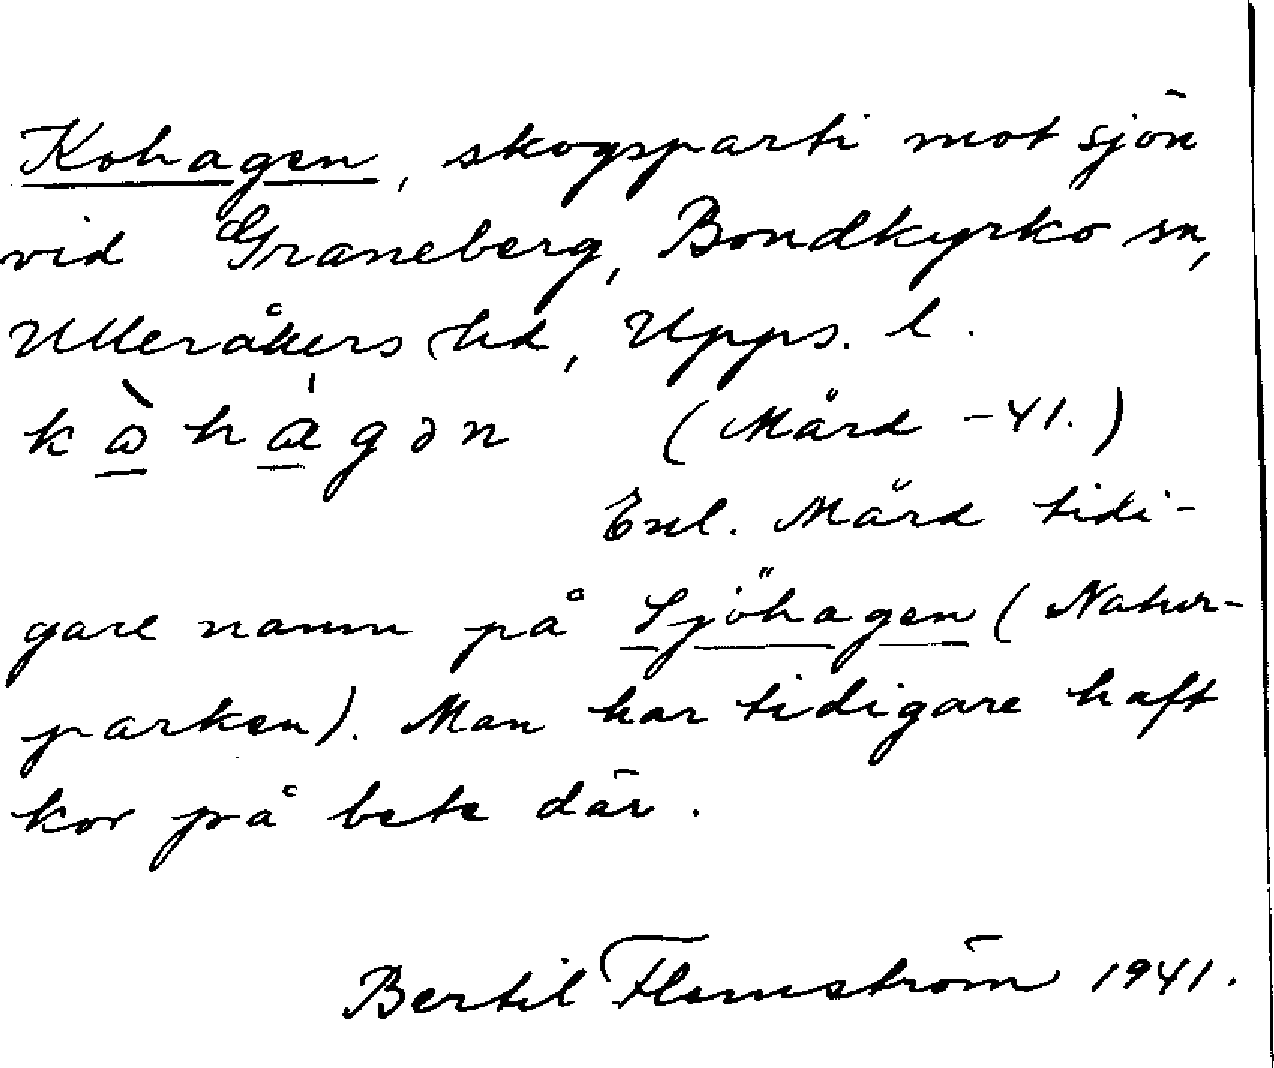 Kohagen, skogsparti mot sjön
vid Graneberg, Bondkyrko sn,
Ulleråkers hd, Upps. l.
kɷ̀hágən (Mård -41.)
Enl. Mård tidi-
gare namn på Sjöhagen (Natur-
parken). Man har tidigare haft
kor på bete där.
Bertil Flemström 1941.